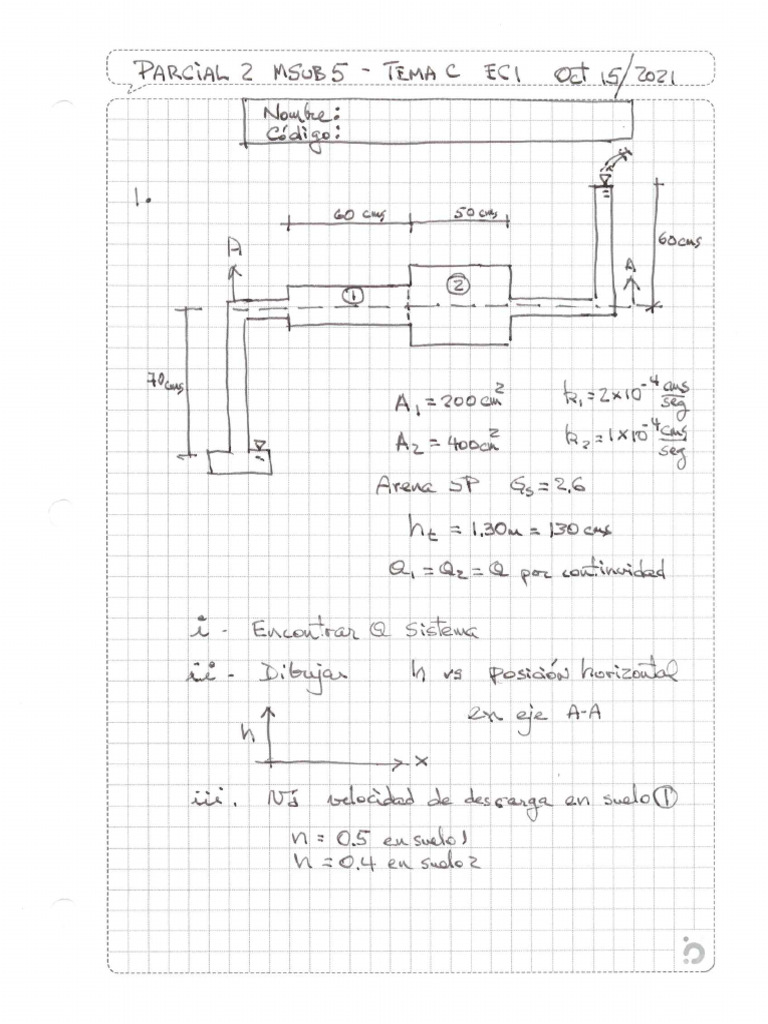 PARCIAL 2 MSUB5 - TEMA C ECI Oct 15/2021
Nombre:
Código:
1.
60 cms
50 cms
60 cms
A
A
①
②
70 cms
A₁ = 200 cm²
k₁ = 2×10⁻⁴ cms/seg
A₂ = 400 cm²
k₂ = 1×10⁻⁴ cms/seg
Arena SP Gs = 2,6
ht = 1.30m = 130 cms
Q₁ = Q₂ = Q por continuidad
i - Encontrar Q sistema
ii - Dibujar h vs posición horizontal
en eje A-A
h
x
iii. Vd velocidad de descarga en suelo ①
n = 0.5 en suelo 1
n = 0.4 en suelo 2